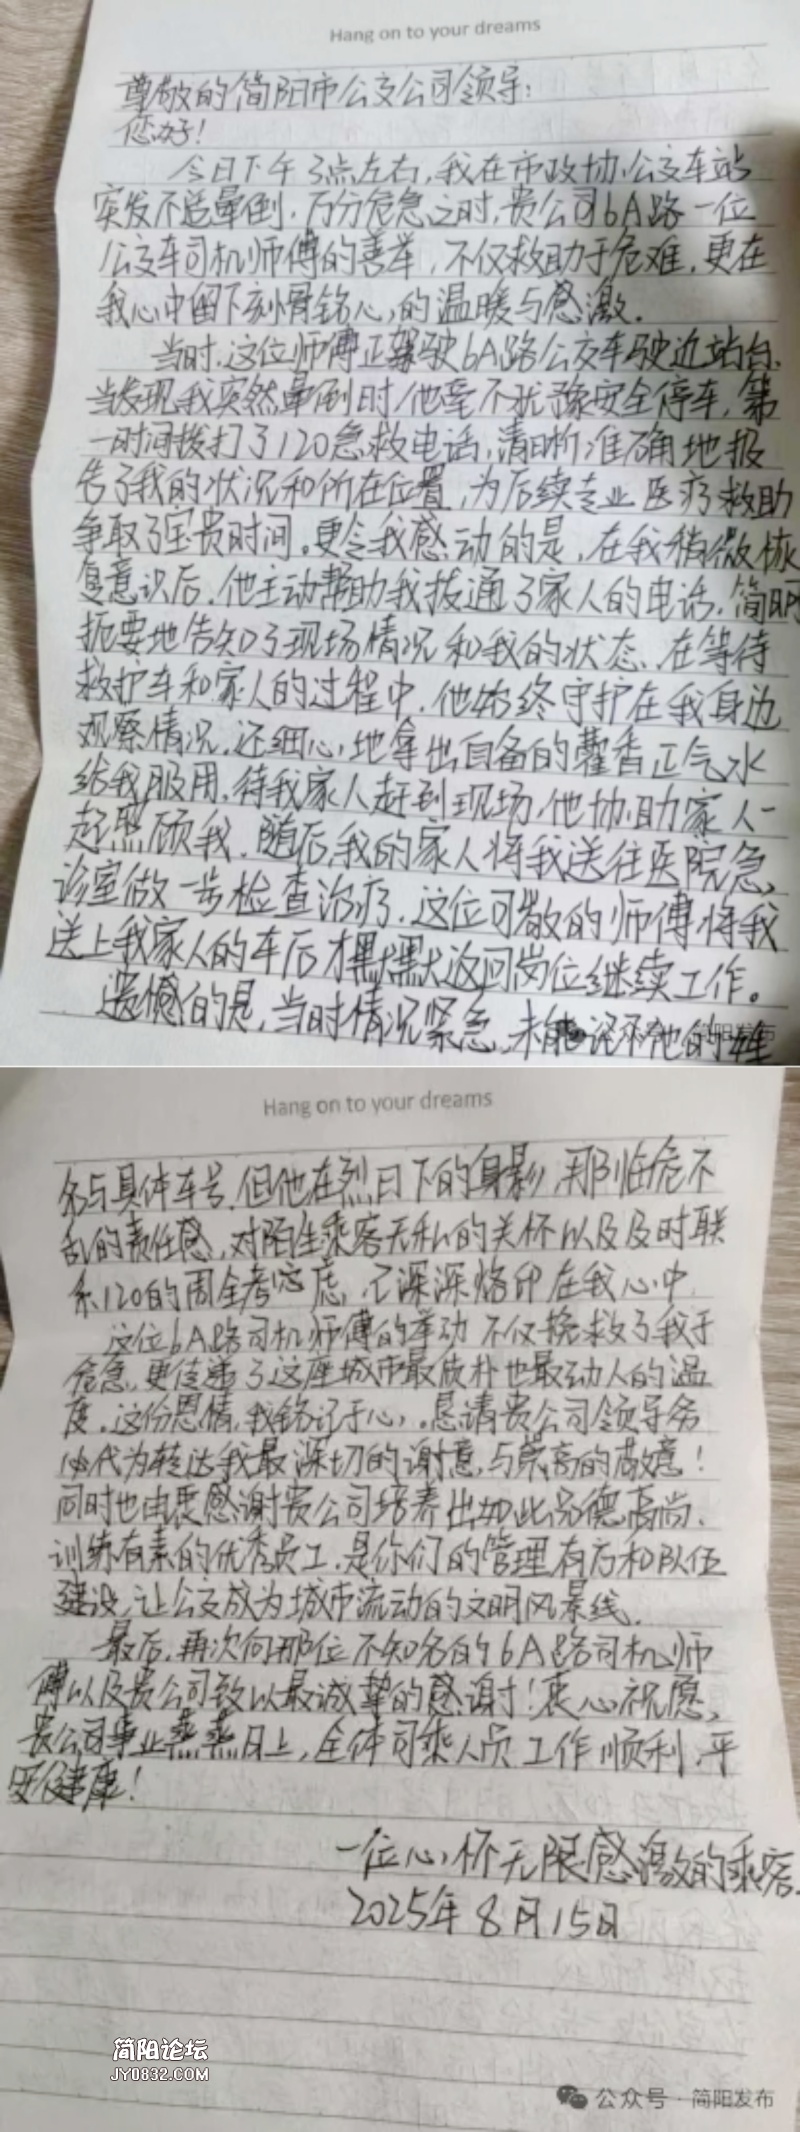 Hang on to your dreams
尊敬的简阳市公交公司领导：
您好！
今日下午3点左右，我在市政协公交车站
突发不适晕倒，万分危急之时，贵公司6A路一位
公交车司机师傅的善举，不仅救助于危难，更在
我心中留下刻骨铭心的温暖与感激．
当时，这位师傅正驾驶6A路公交车驶进站台，
当发现我突然晕倒时，他毫不犹豫安全停车，第
一时间拨打了120急救电话，清晰准确地报
告了我的状况和所在位置，为后续专业医疗救助
争取了宝贵时间。更令我感动的是，在我稍微恢
复意识后，他主动帮助我拔通了家人的电话，简明
扼要地告知了现场情况和我的状态、在等待
救护车和家人的过程中，他始终守护在我身边
观察情况，还细心地拿出自备的藿香正气水
给我服用，待我家人赶到现场，他协助家人一
起照顾我．随后，我的家人将我送往医院急
诊室做一步检查治疗．这位可敬的师傅将我
送上我家人的车后才默默返回岗位继续工作。
遗憾的是，当时情况紧急，未能记下他的姓
Hang on to your dreams
名与具体车号，但他在烈日下的身影，那临危不
乱的责任感，对陌生乘客无私的关怀以及及时联
系120的周全考虑，已深深烙印在我心中
这位6A路司机师傅的举动 不仅挽救了我于
危急，更传递了这座城市最质朴也最动人的温
度．这份恩情，我铭记于心，．恳请贵公司领导务
必代为转达我最深切的谢意，与崇高的敬意！
同时也由衷感谢贵公司培养出如此品德高尚、
训练有素的优秀员工，是你们的管理有方和队伍
建设，让公交成为城市流动的文明风景线．
最后，再次向那位不知名的6A路司机师
傅以及贵公司致以最诚挚的感谢！衷心祝愿，
贵公司事业蒸蒸日上，全体司乘人员工作顺利，平
安健康！
一位心怀无限感激的乘客．
2025年8月15日
简阳论坛
JY0832.COM
公众号 · 简阳发布